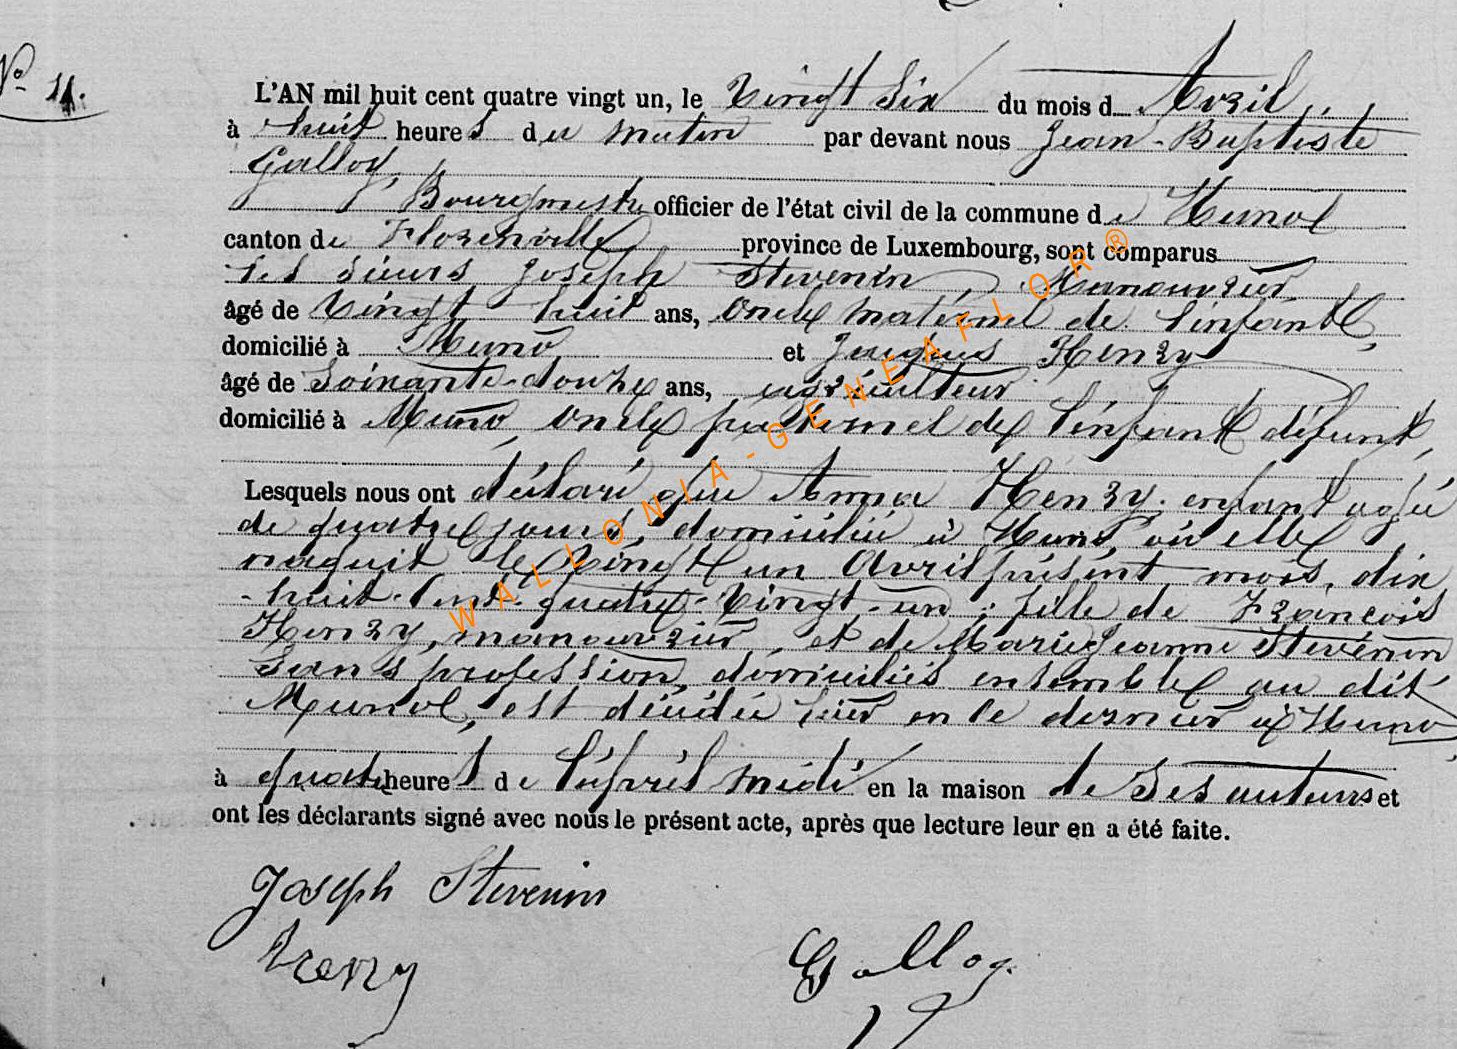 N° 11.
L'AN mil huit cent quatre vingt un, le Vingt Six du mois d Avril,
à huit heures du matin par devant nous Jean-Baptiste
Galloy,
Bourgmestre officier de l'état civil de la commune de Muno
canton de Florenville province de Luxembourg, sont comparus
les sieurs Joseph Stevenin, Manouvrier
âgé de vingt huit ans, oncle maternel de l'enfant,
domicilié à Muno et Jacques Henry
âgé de Soixante-douze ans, agriculteur
domicilié à Muno, oncle paternel de l'enfant défunt,
Lesquels nous ont déclaré que Anna Henry, enfant agée
de quatre jours, domiciliée à Muno, où elle
naquit le vingt un Avril présent mois, dix
-huit-cent-quatre-vingt-un; fille de François
Henry, manouvrier, et de Marie Jeanne Stévenin
Sans profession, domiciliés ensemble au dit
Muno, est décédée hier en le dernier à Muno,
à quatre heures de l'après midi en la maison de Ses auteurs et
ont les déclarants signé avec nous le présent acte, après que lecture leur en a été faite.
Joseph Stevenin
Henry
Galloy
WALLONIA-GENEAFLOR®